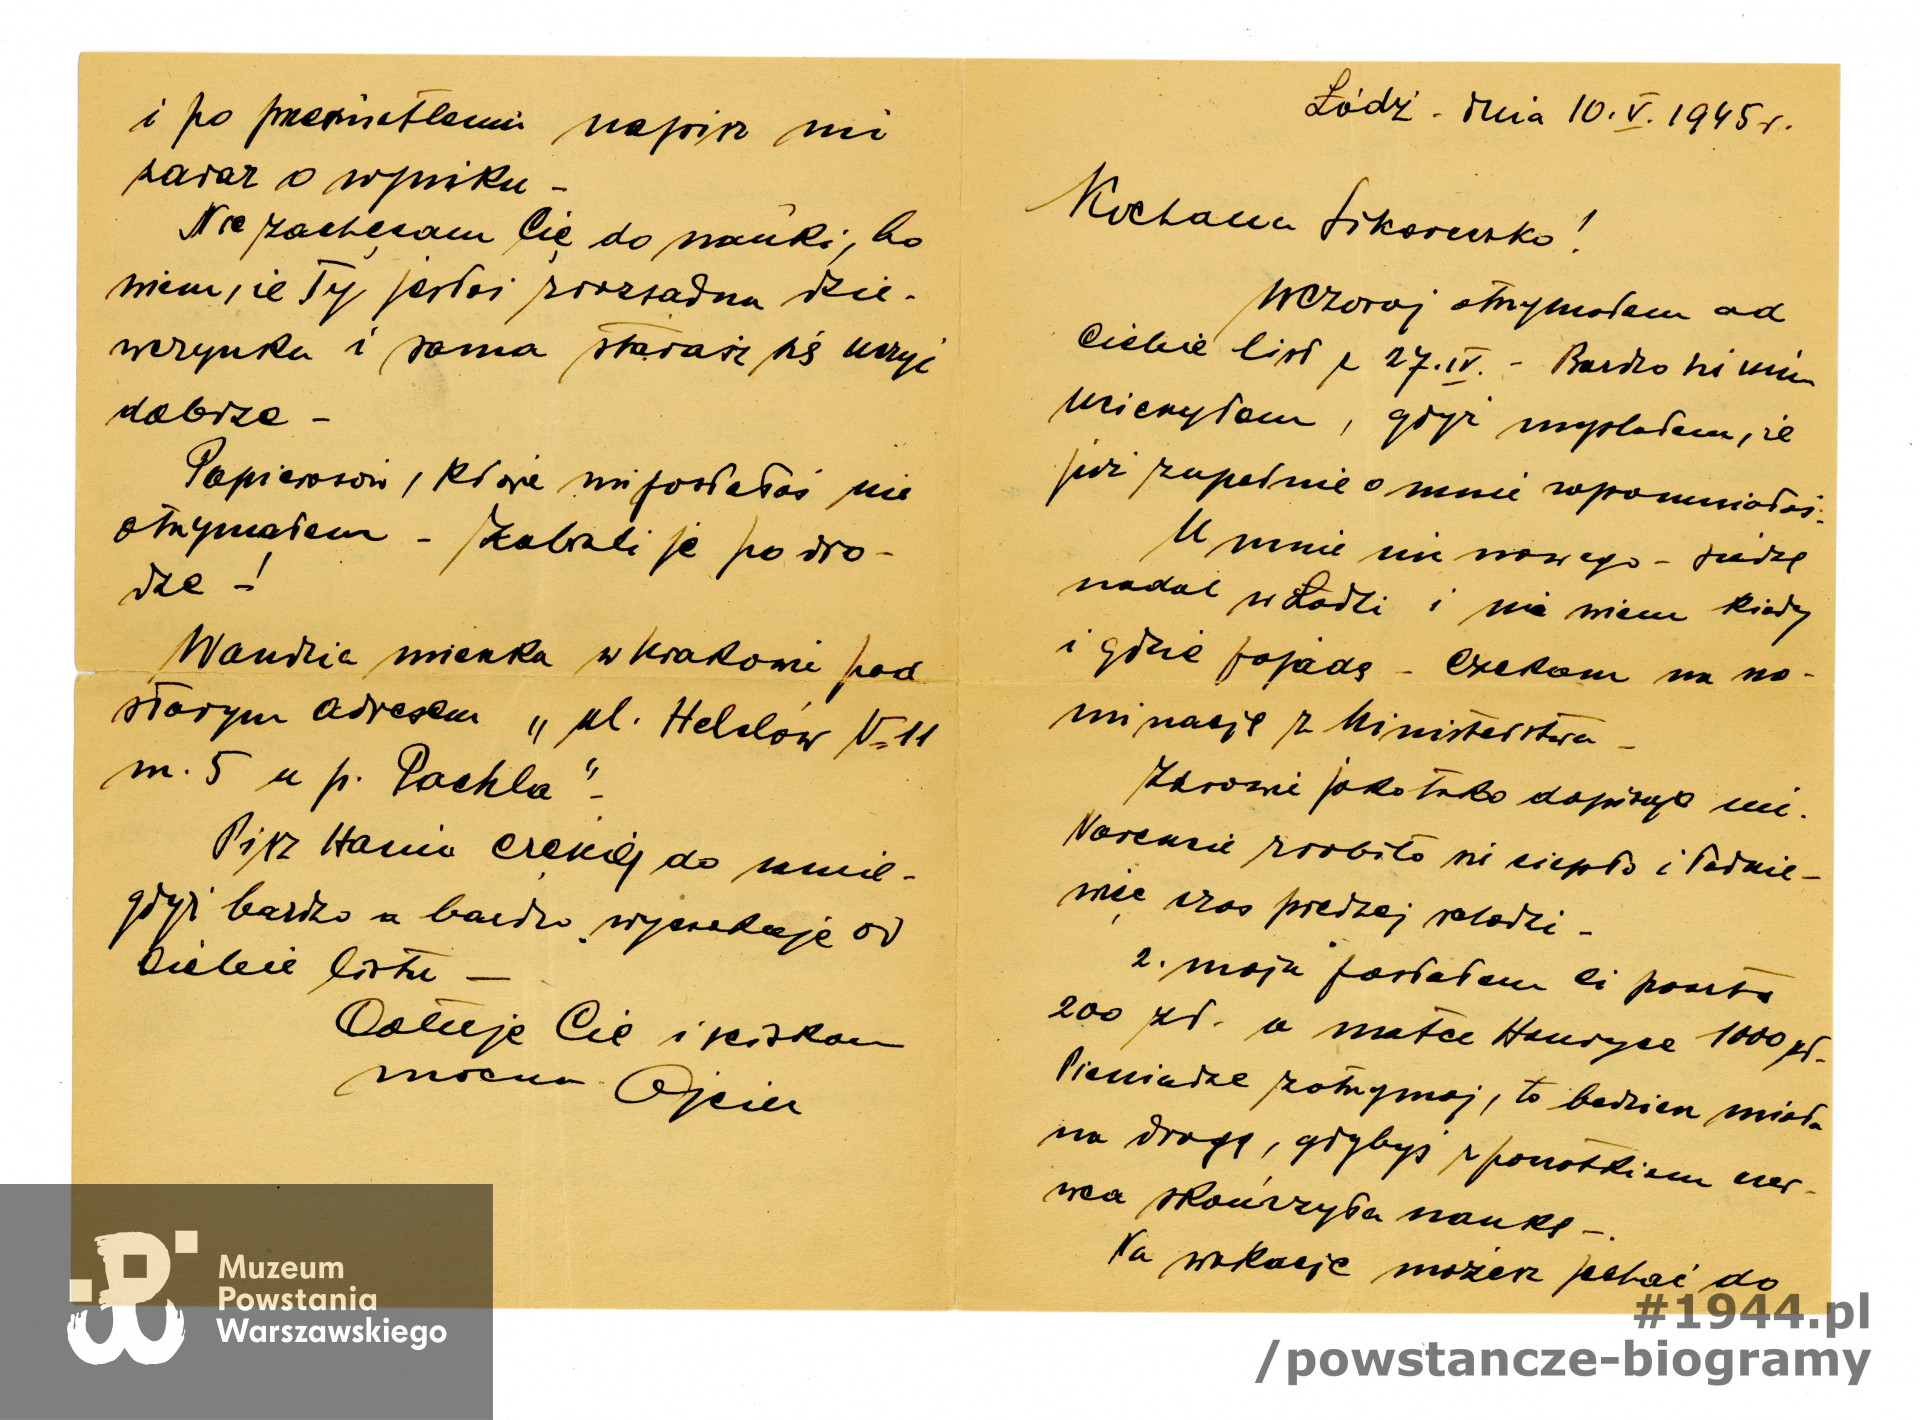 Łódź - dnia 10.V.1945 r.
Kochana Sikoreczko!
Wczoraj otrzymałem od
Ciebie list z 27.IV. - Bardzo się nim
ucieszyłem, gdyż myślałem, że
już zupełnie o mnie zapomniałaś.
U mnie nic nowego - siedzę
nadal w Łodzi i nie wiem kiedy
i gdzie pojadę - Czekam na no-
minację z Ministerstwa -
Zdrowie jako tako dopisuje mi.
Nareszcie zrobiło się ciepło i ładnie -
więc czas prędzej schodzi -
2. maja posłałem Ci pocztą
200 zł. a matce Henryce 1000 zł.
Pieniądze zatrzymaj, to będziesz miała
na drogę, gdybyś z początkiem czer-
wca skończyła naukę -.
Na wakacje możesz jechać do
i po prześwietleniu napisz mi
zaraz o wyniku -
Nie zachęcam Cię do nauki, bo
wiem, że Ty jesteś rozsądna dzie-
wczynka i sama starasz się uczyć
dobrze -
Papierosów, które mi posłałaś nie
otrzymałem - Zabrali je po dro-
dze -!
Wandzia mieszka w Krakowie pod
starym adresem „ul. Helclów N= 11
m. 5 u p. Pachla" -
Pisz Haniu częściej do mnie -
gdyż bardzo a bardzo wyczekuję od
Ciebie listu -
Całuję Cię i ściskam
mocno Ojciec
Muzeum
Powstania
Warszawskiego
#1944.pl
/powstancze-biogramy